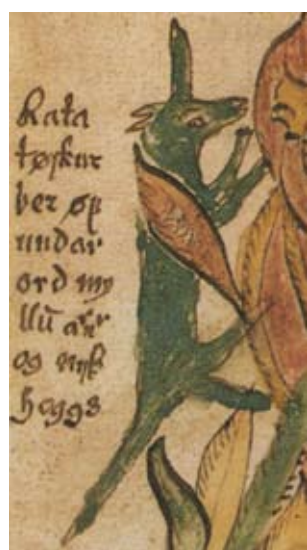 Rata
tøskur
ber øf
undar
ord my
llū
og nijd
hoggs